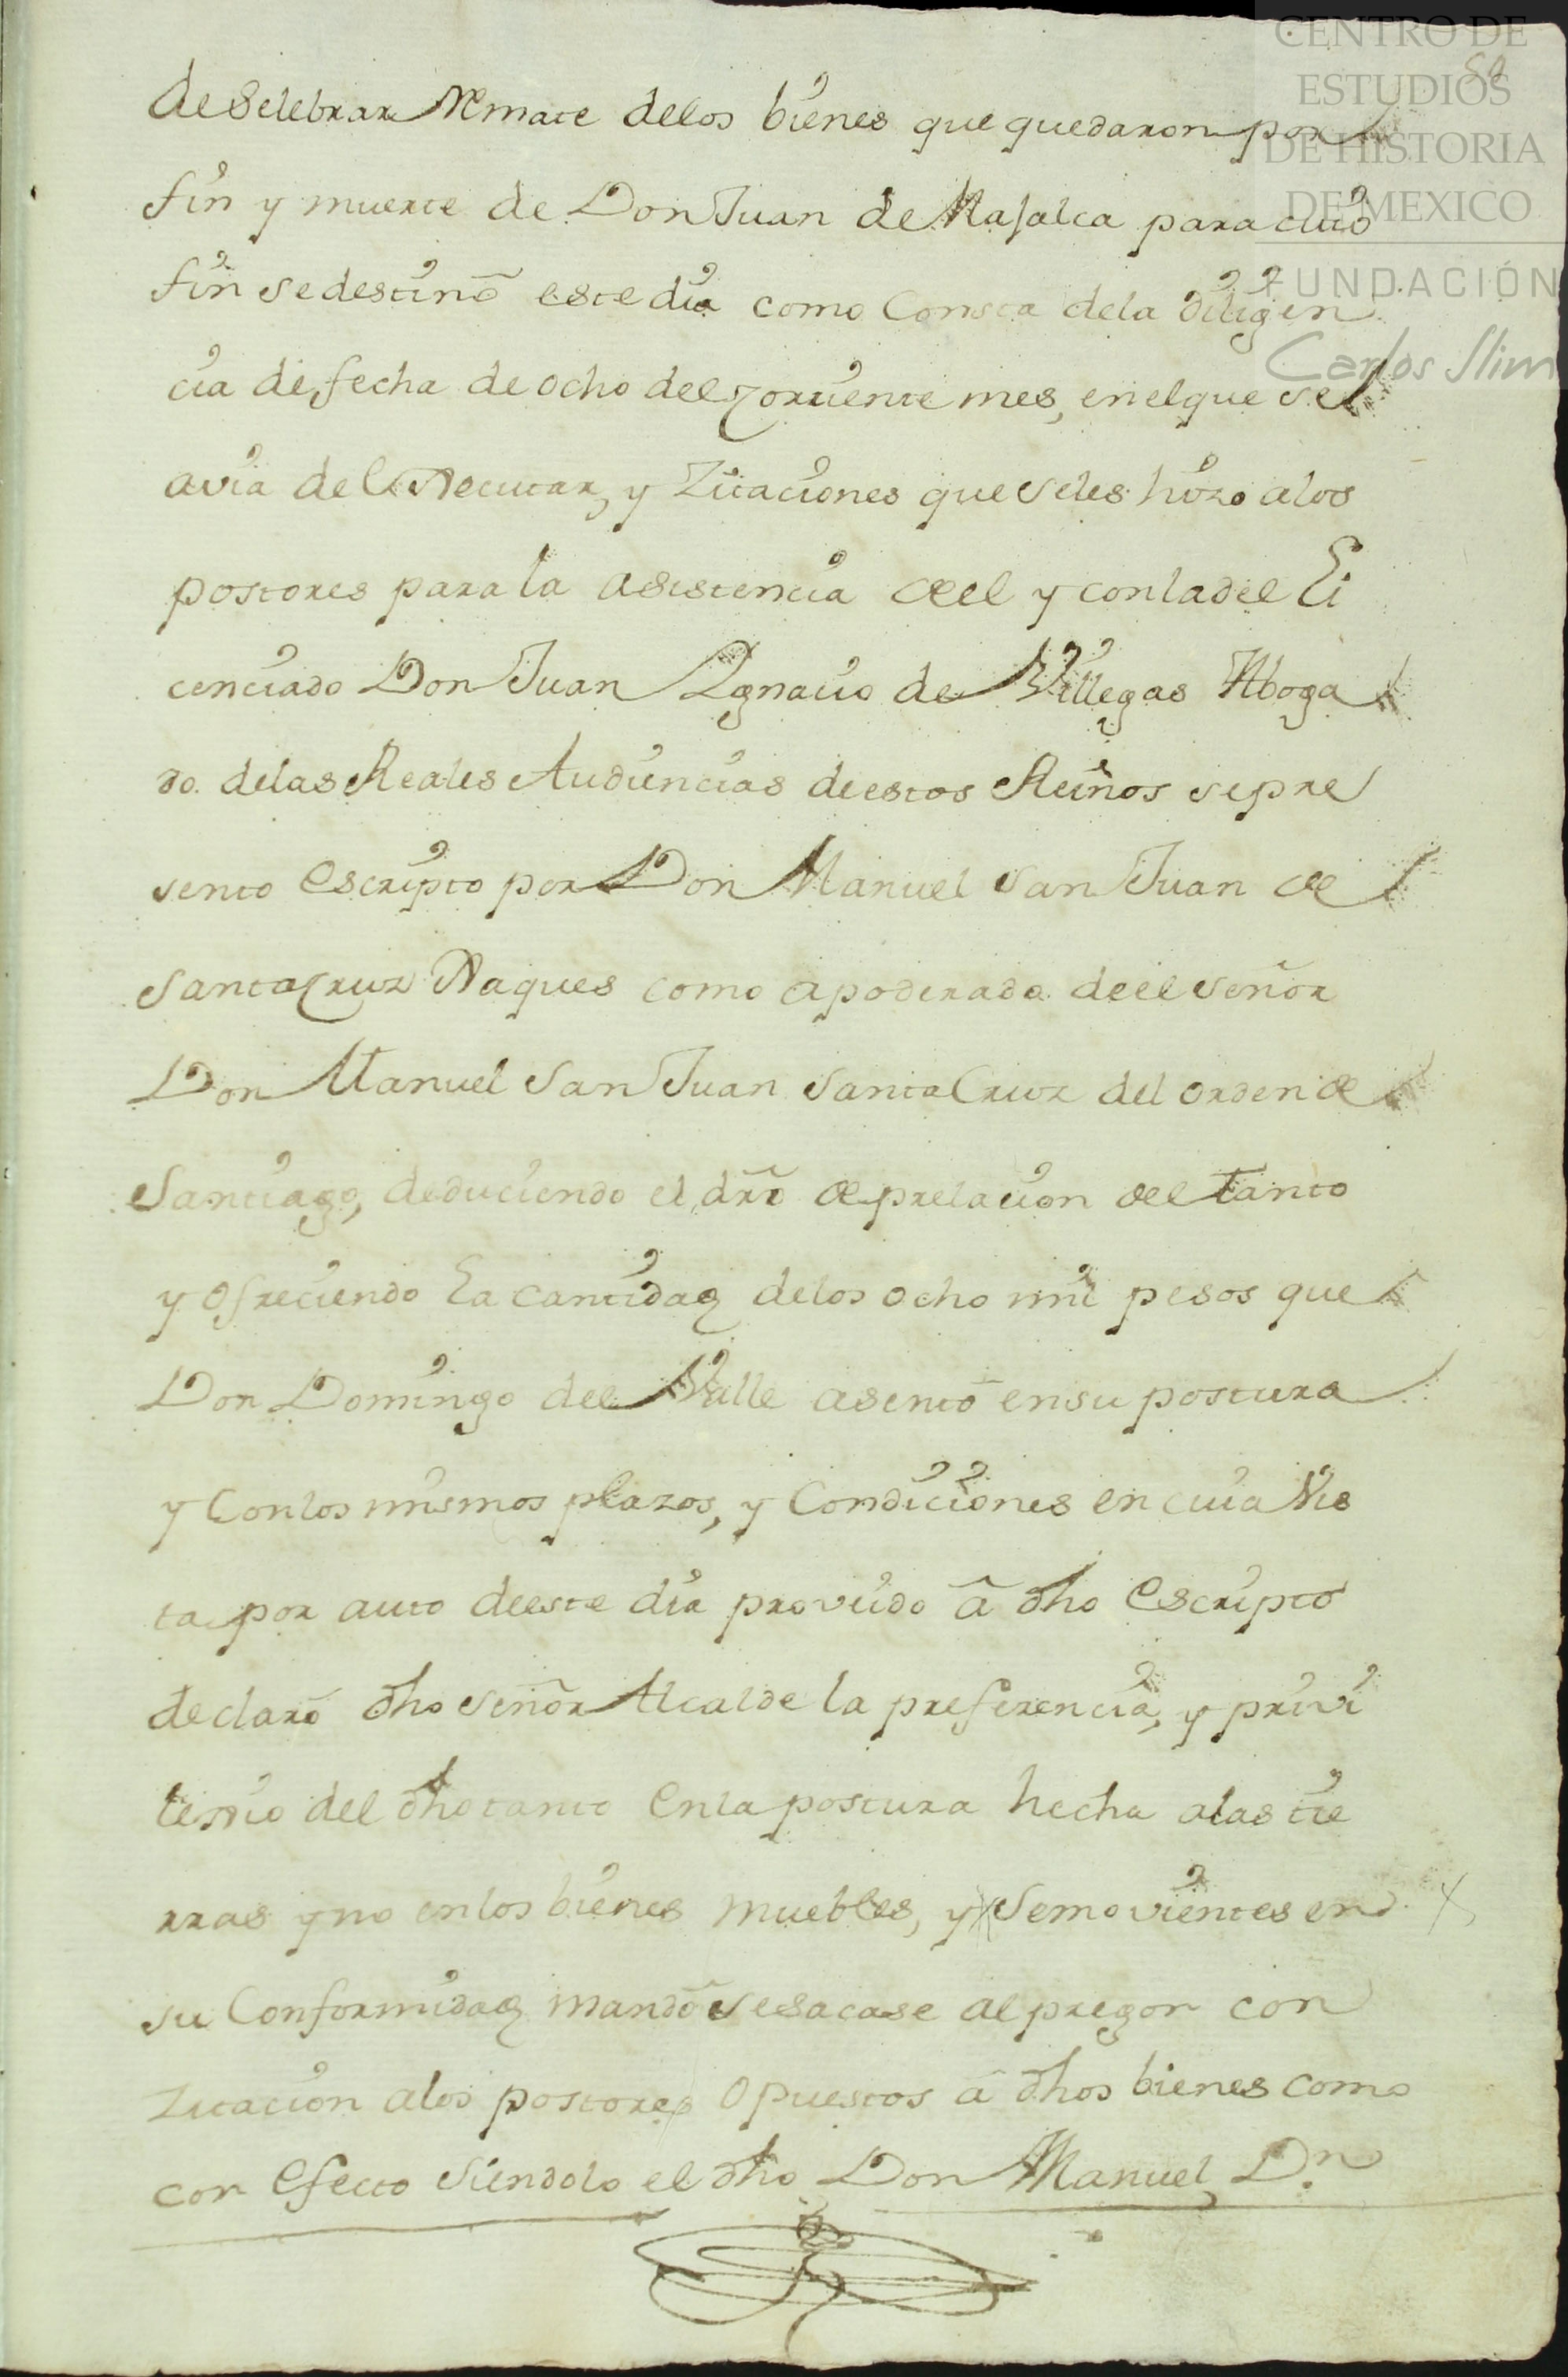 CENTRO DE
ESTUDIOS
DE HISTORIA
DE MEXICO
FUNDACIÓN
Carlos Slim
de Selebrar Remate delos bienes que quedaron por
fin y muerte de Don Juan de Masalca para cuio
fin se destinò este dia como Consta dela diligen
cia de fecha de ocho del corriente mes, en el que se
avia de executar, y Zitaciones que seles hizo alos
postores para la asistencia de el y con la del Li
cenciado Don Juan Ignacio de Villegas Aboga
do. delas Reales Audiencias de estos Reinos se pre
sento escripto por Don Manuel San Juan de
Santa Cruz Xaques como apoderado de el señor
Don Manuel San Juan Santa Cruz del orden de
Santiago, deduciendo el drño de prelacion del tanto
y ofreciendo la cantidad delos ocho mil pesos que
Don Domingo del Valle asentò en su postura
y Con los mismos plazos, y Condiciones en cuia Vis
ta por auto de este dia proveido â dho escripto
declarò dho señor Alcalde la preferencia, y privi
lexio del dho tanto en la postura hecha alas tie
rras y no en los bienes muebles, y Semovientes en
su Conformidad mandò se sacase al pregon con
Zitacion alos postores Opuestos â dhos bienes como
con efecto siendolo el dho Don Manuel, Dn